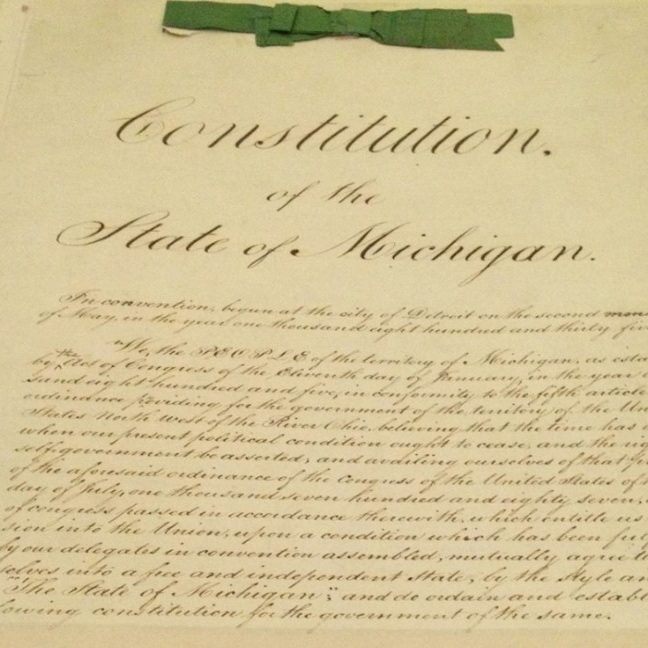 Constitution.
of the
State of Michigan.
In convention, begun at the city of Detroit on the second
of May, in the year one thousand eight hundred and thirty five
"We, the PEOPLE of the territory of Michigan, as esta
by the Act of Congress of the Eleventh day of January, in the year
sand eight hundred and five, in conformity to the fifth article
ordinance providing for the government of the territory of the Uni
States North west of the River Ohio, believing that the time has
when our present political condition ought to cease, and the rig
self-government be asserted; and availing ourselves of that
of the aforesaid ordinance of the congress of the United States of
day of July, one thousand seven hundred and eighty seven,
of congress passed in accordance therewith, which entitle us
sion into the Union, upon a condition which has been ful
by our delegates in convention assembled, mutually agree to
selves into a free and independent State, by the style an
"The State of Michigan"; and do ordain and establ
lowing constitution for the government of the same.